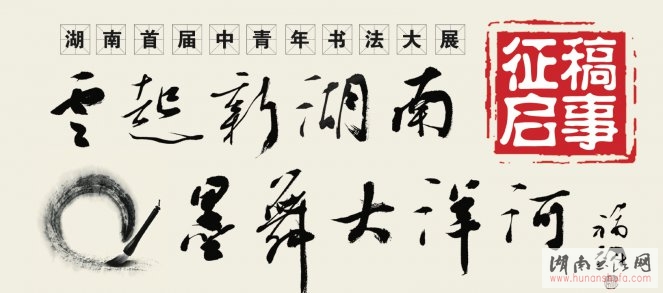 湖南首届中青年书法大展
云起新湖南
征稿
启事
墨舞大洋河
湖南书法网
www.hunanshufa.com